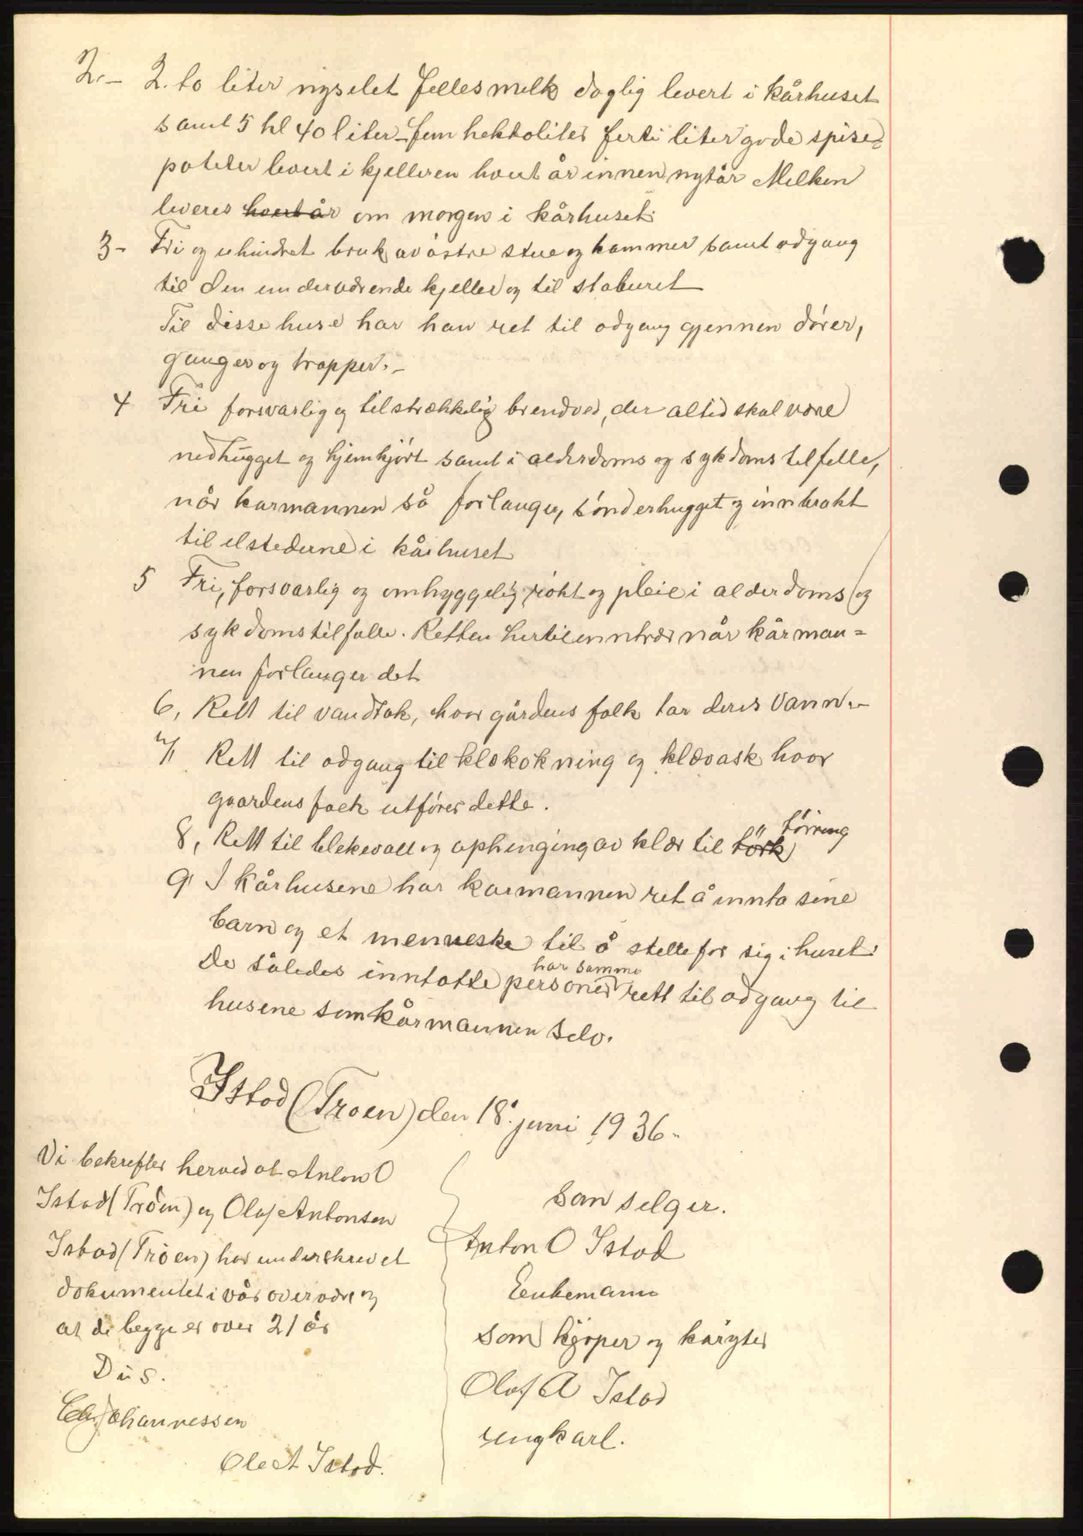 2.- 2. to liter nysilet fellesmelk daglig levert i kårhuset
samt 5 hl 40 liter - fem hektoliter førti liter gode spise=
poteter levert i kjelleren hvert år innen nytår Melken
leveres hvert år om morgen i kårhuset.
3- Fri og uhindret bruk av østre stue og kammer samt adgang
til den underværende kjeller og til staburet
Til disse huse har han ret til adgang gjennem dører,
ganger og trapper.-
4 Fri forsvarlig og tilstrækkelig brendved, der altid skal være
nedhugget og hjemkjørt samt i alderdoms og sykdoms tilfelle,
når karmannen så forlanger, sønderhugget og innbrakt
til ilstederne i kårhuset
5 Fri, forsvarlig og omhyggelig røkt og pleie i alderdoms og
sykdomstilfalle. Retten hertil inntrær når kårman=
nen forlanger det
6, Rett til vandtak, hvor gårdens folk tar deres vann.-
7, Rett til adgang til klækokning og klævask hvor
gaardens folk utfører dette.
8, Rett til blekevall og ophenging av klær til törk tørring
9, I kårhusene har karmannen ret å innta sine
barn og et menneske til å stelle for sig i huset.
De således inntatte personer har samme rett til adgang til
husene som kårmannen selv.
Istad (Trøen) den 18. juni 1936.
Vi bekrefter herved at Anton O
Istad (Trøen) og Olaf Antonsen
Istad (Trøen) har underskrevet
dokumentet i vår overvær og
at de begge er over 21 år
D u s.
Johannessen
Ole A Istad.
Som selger.
Anton O Istad
Enkemann
Som kjøper og kåryter
Olaf A Istad
ungkarl.